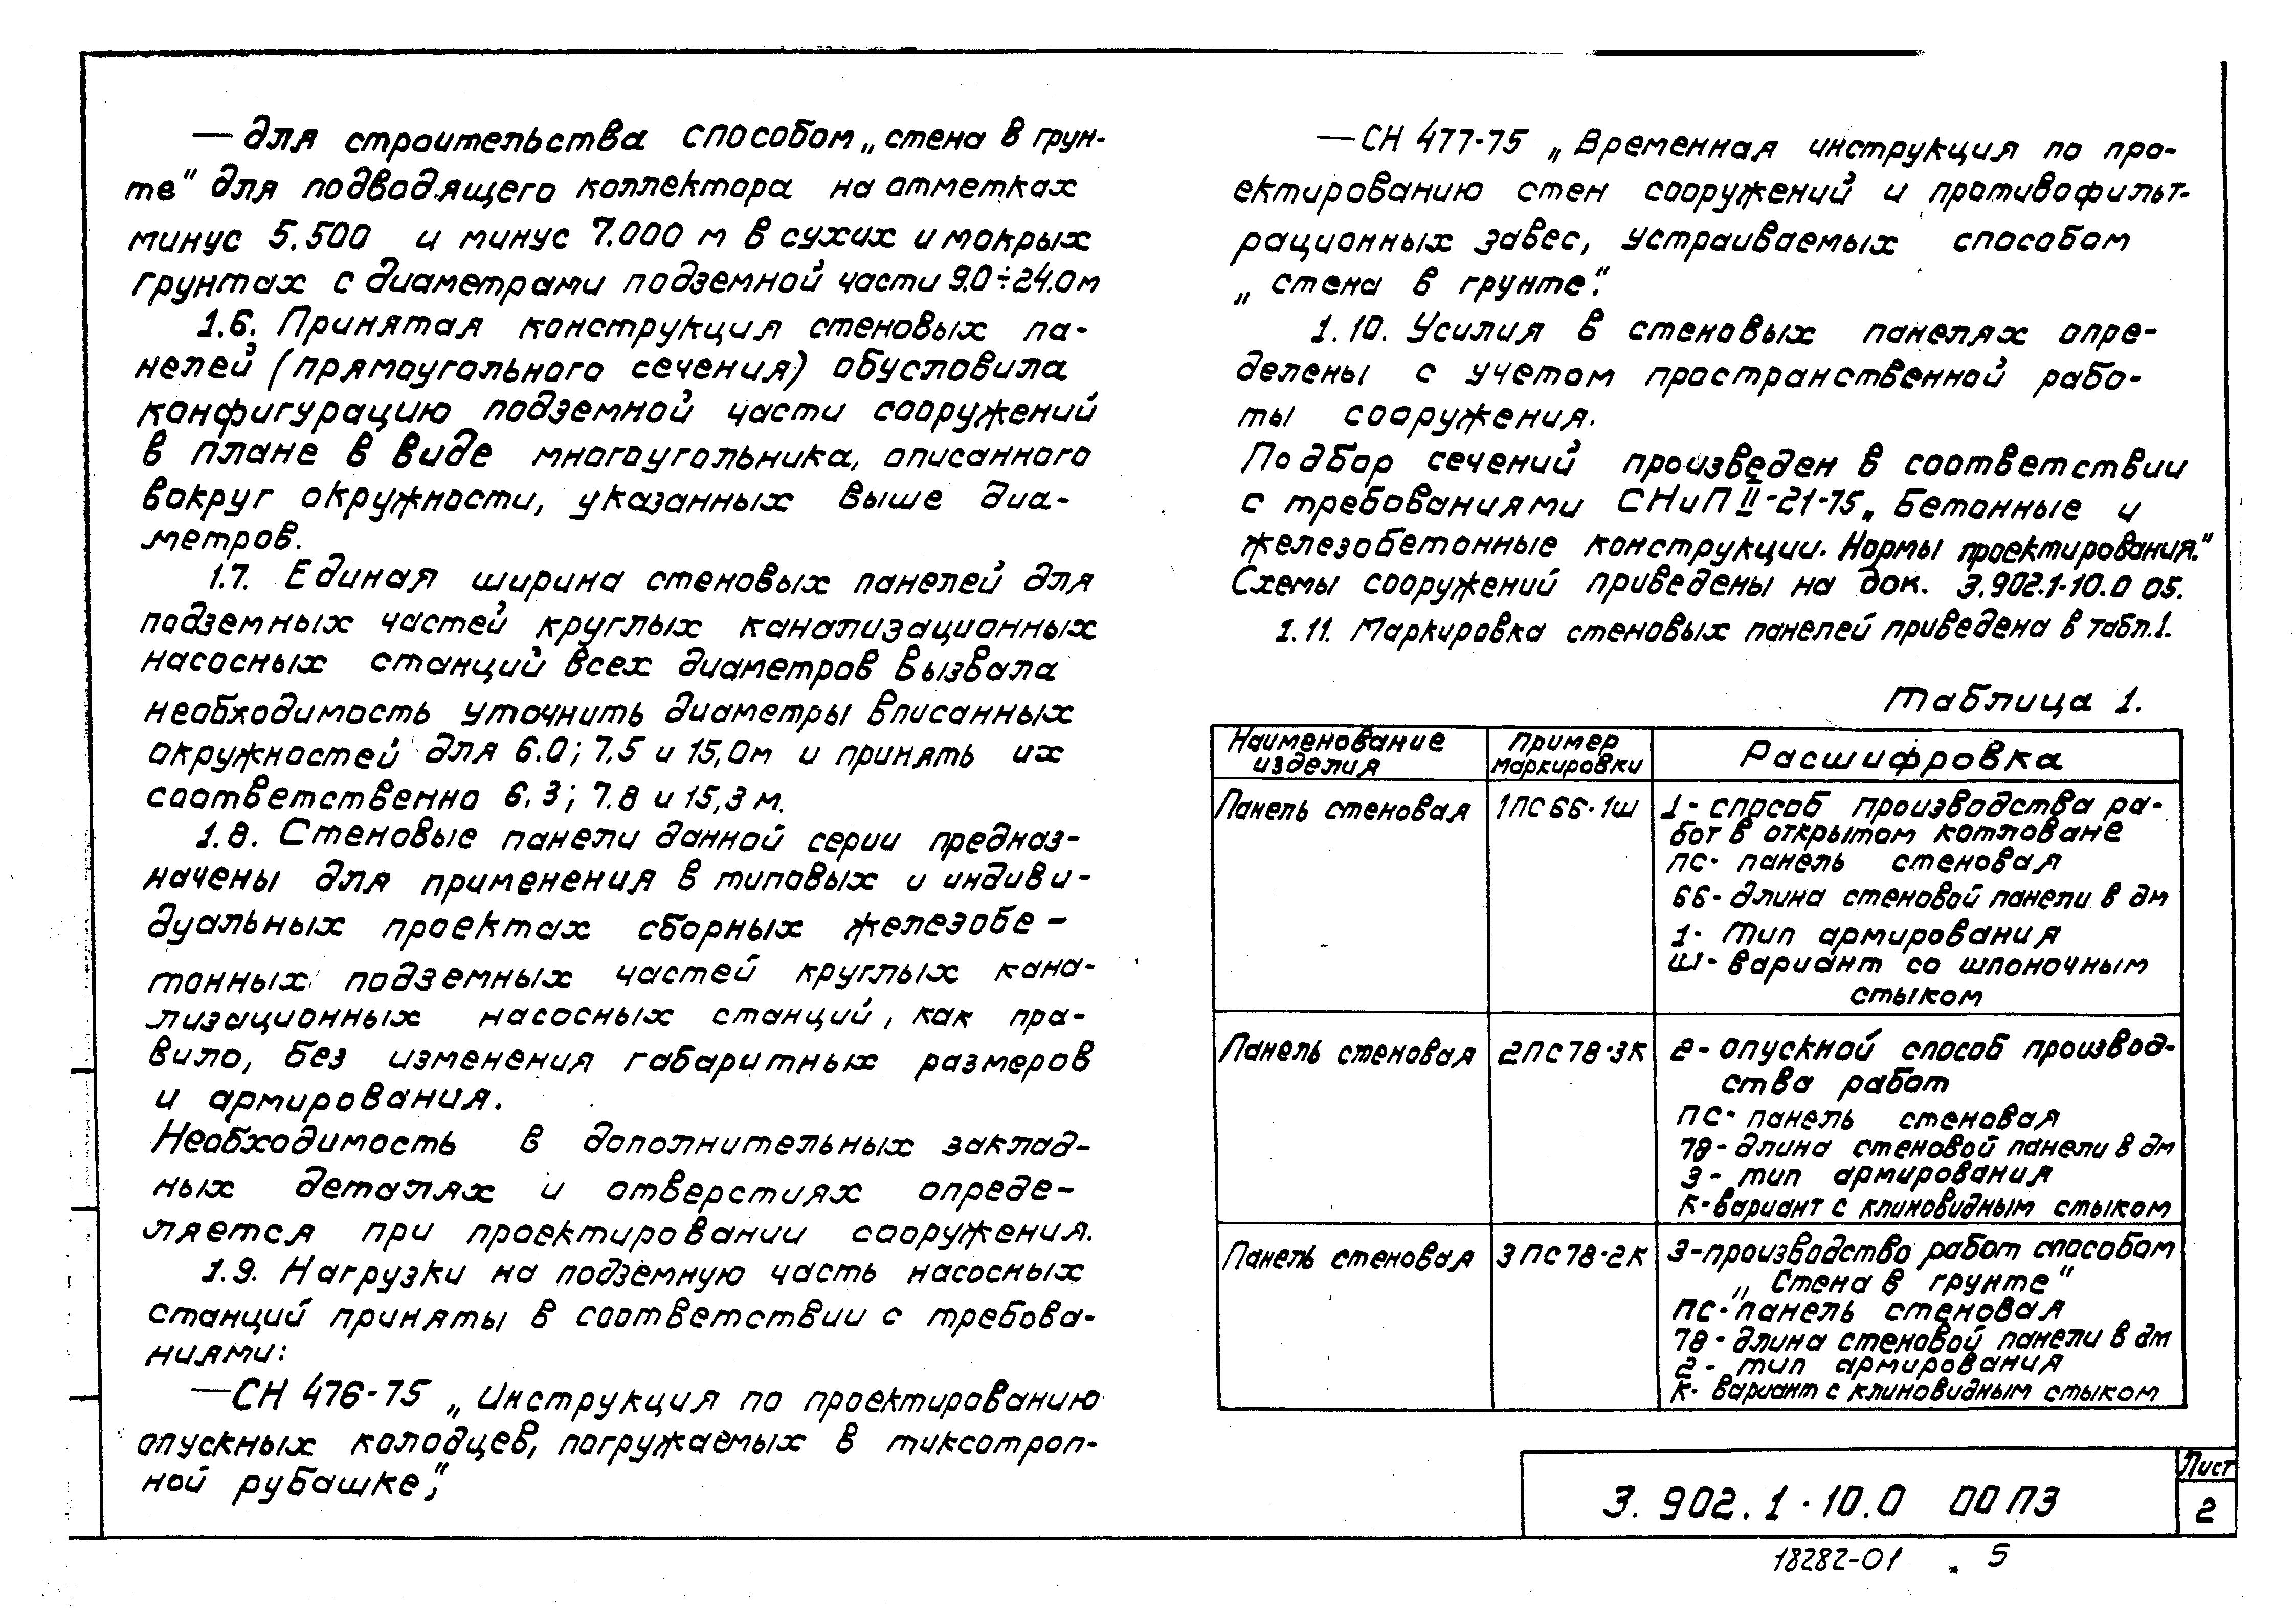 — для строительства способом „стена в грун-
те" для подводящего коллектора на отметках
минус 5.500 и минус 7.000 м в сухих и мокрых
грунтах с диаметрами подземной части 9.0÷24.0м
1.6. Принятая конструкция стеновых па-
нелей (прямоугольного сечения) обусловила
конфигурацию подземной части сооружений
в плане в виде многоугольника, описанного
вокруг окружности, указанных выше диа-
метров.
1.7. Единая ширина стеновых панелей для
подземных частей круглых канализационных
насосных станций всех диаметров вызвала
необходимость уточнить диаметры вписанных
окружностей для 6.0; 7.5 и 15,0м и принять их
соответственно 6.3; 7.8 и 15,3 м.
1.8. Стеновые панели данной серии предназ-
начены для применения в типовых и индиви-
дуальных проектах сборных железобе-
тонных подземных частей круглых кана-
лизационных насосных станций, как пра-
вило, без изменения габаритных размеров
и армирования.
Необходимость в дополнительных заклад-
ных деталях и отверстиях опреде-
ляется при проектировании сооружения.
1.9. Нагрузки на подземную часть насосных
станций приняты в соответствии с требова-
ниями:
— СН 476-75 „Инструкция по проектированию
опускных колодцев, погружаемых в тиксотроп-
ной рубашке",
— СН 477-75 „Временная инструкция по про-
ектированию стен сооружений и противофильт-
рационных завес, устраиваемых способом
„стена в грунте".
1.10. Усилия в стеновых панелях опре-
делены с учетом пространственной рабо-
ты сооружения.
Подбор сечений произведен в соответствии
с требованиями СНиП II-21-75 „Бетонные и
железобетонные конструкции. Нормы проектирования."
Схемы сооружений приведены на док. 3.902.1-10.0 05.
1.11. Маркировка стеновых панелей приведена в табл.1.
Таблица 1.
Наименование изделия
Пример маркировки
Расшифровка
Панель стеновая
1ПС66-1ш
1- способ производства ра-
бот в открытом котловане
ПС- панель стеновая
66- длина стеновой панели в дм
1- Тип армирования
ш- вариант со шпоночным
стыком
Панель стеновая
2ПС78-3К
2- опускной способ производ-
ства работ
ПС- панель стеновая
78- длина стеновой панели в дм
3- тип армирования
К- вариант с клиновидным стыком
Панель стеновая
3ПС78-2К
3-производство работ способом
„Стена в грунте"
ПС- панель стеновая
78- длина стеновой панели в дм
2- тип армирования
К- вариант с клиновидным стыком
3.902.1-10.0 00ПЗ
Лист
2
18282-01 5